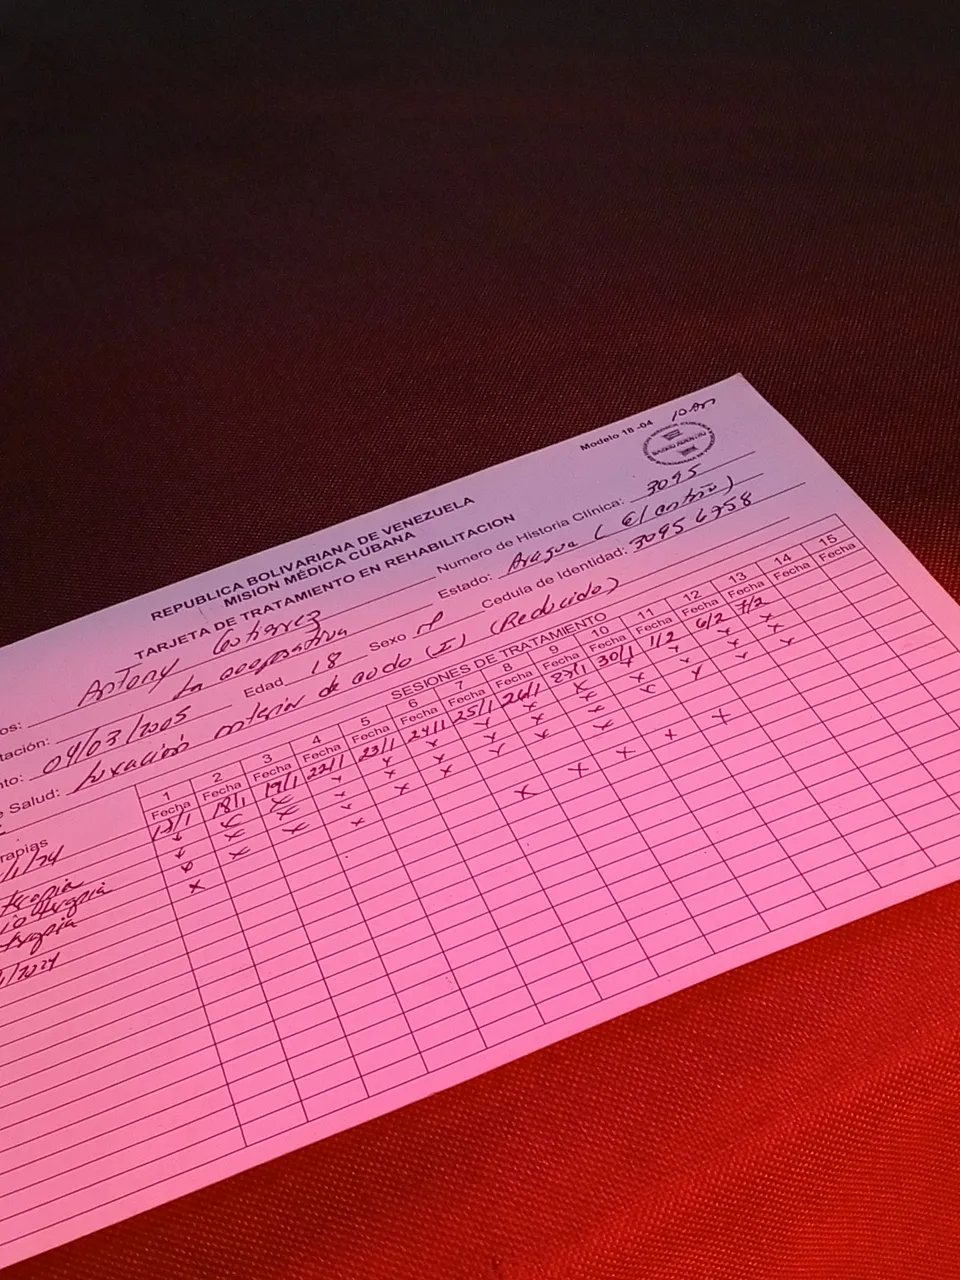 Modelo 18-04 10 Am
REPUBLICA BOLIVARIANA DE VENEZUELA
MISION MÉDICA CUBANA
TARJETA DE TRATAMIENTO EN REHABILITACION
os: Antony Gutierrez Numero de Historia Clínica: 3095
tación: La cooperativa Estado: Aragua (El castaño)
nto: 04/03/2005 Edad 18 Sexo M Cedula de Identidad: 30956758
Salud: Luxación anterior de codo (I) (Reducido)
SESIONES DE TRATAMIENTO
rapias 1 2 3 4 5 6 7 8 9 10 11 12 13 14 15
Fecha Fecha Fecha Fecha Fecha Fecha Fecha Fecha Fecha Fecha Fecha Fecha Fecha Fecha Fecha
18/1 19/1 22/1 23/1 24/1 25/1 26/1 29/1 30/1 1/2 6/2 7/2
/1/24 x x x x x x x x x x x x
terapia
terapia
terapia
/2024